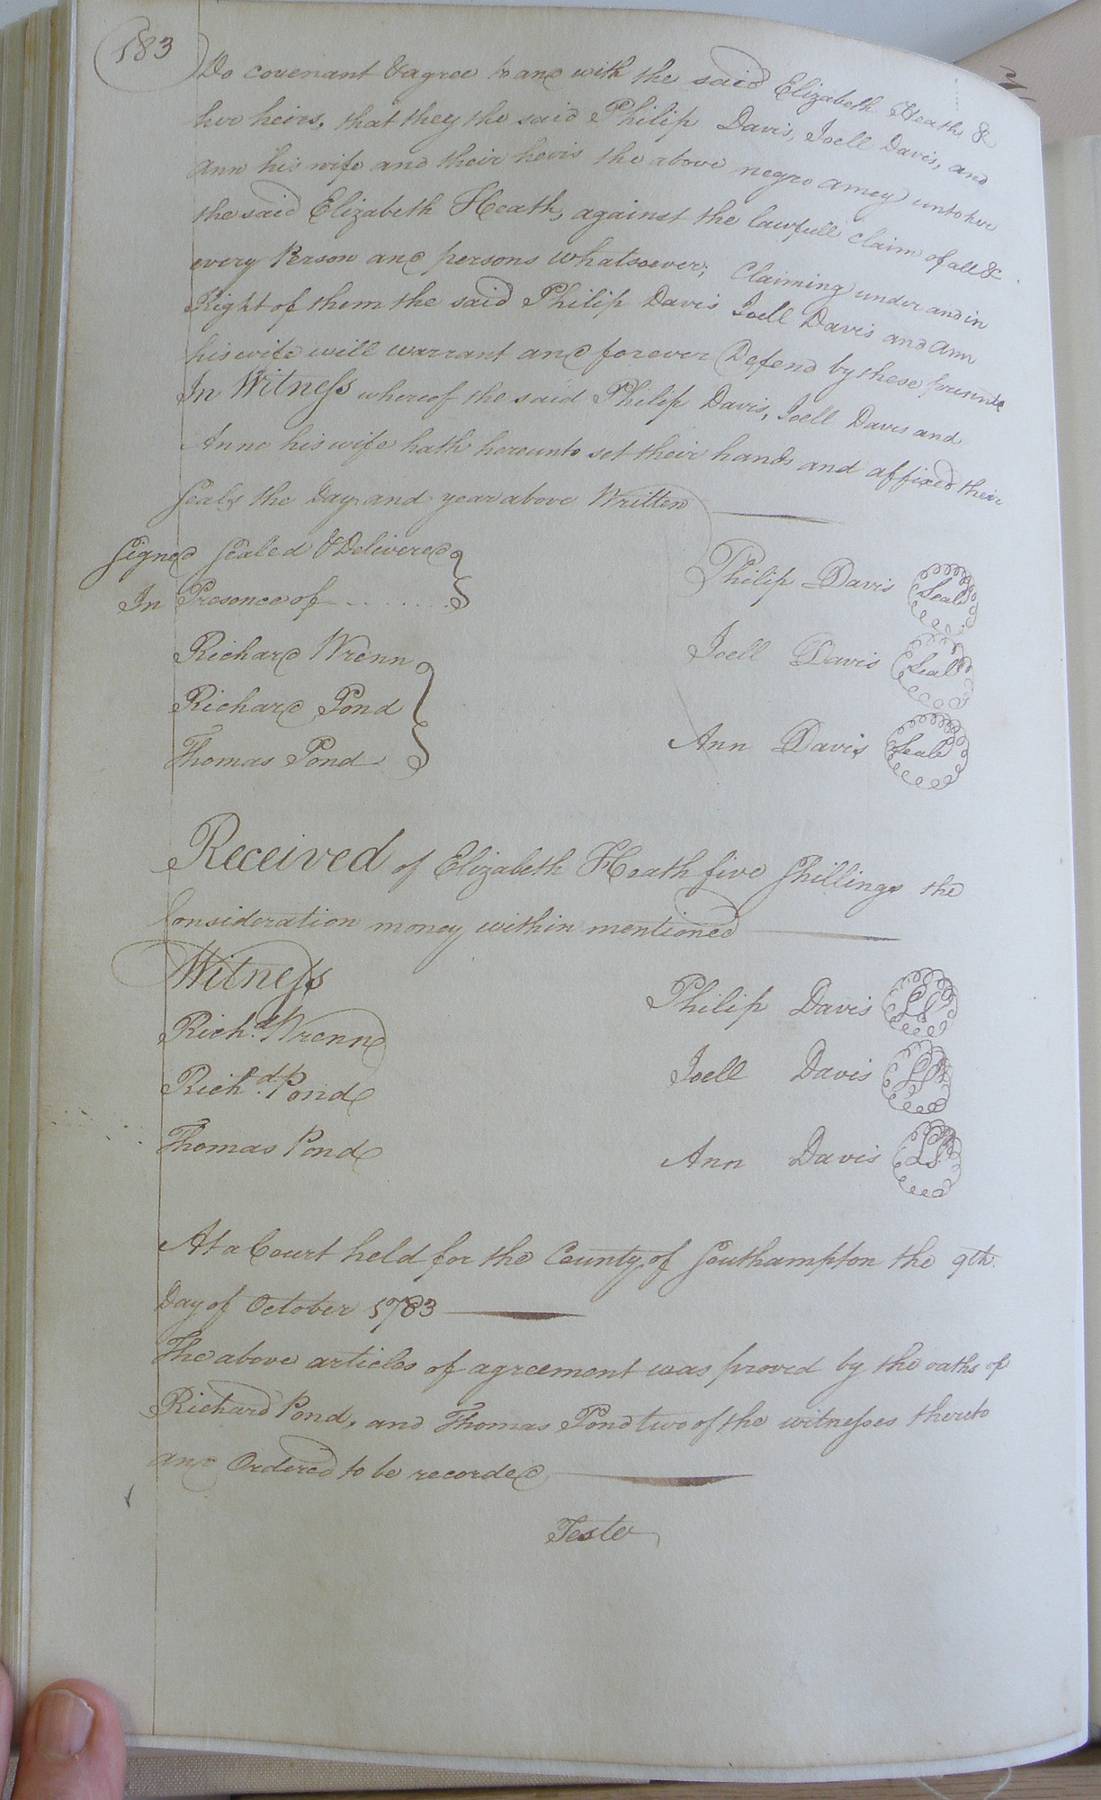 183
Do covenant & agree to and with the said Elizabeth Heath &
her heirs, that they the said Philip Davis, Joell Davis, and
Ann his wife and their heris the above negro amey unto her
the said Elizabeth Heath, against the lawfull claim of all &
every Person and persons whatsoever; Claiming under and in
Right of them the said Philip Davis Joell Davis and Ann
his wife will warrant and forever Defend by these presents
In Witness whereof the said Philip Davis, Joell Davis and
Anne his wife hath hereunto set their hands and affixed their
Seals the Day and year above Written
Signed Sealed & Delivered
In Presence of
Philip Davis Seal
Richard Wrenn
Joell Davis Seal
Richard Pond
Thomas Pond
Ann Davis Seal
Received of Elizabeth Heath five Shillings the
Consideration money within mentioned
Witness
Philip Davis LS
Richd. Wrenn
Joell Davis LS
Richd. Pond
Thomas Pond
Ann Davis LS
At a Court held for the County of Southampton the 9th.
Day of October 1783
The above articles of agreement was proved by the oaths of
Richard Pond, and Thomas Pond two of the witnesses thereto
and Ordered to be recorded
Teste